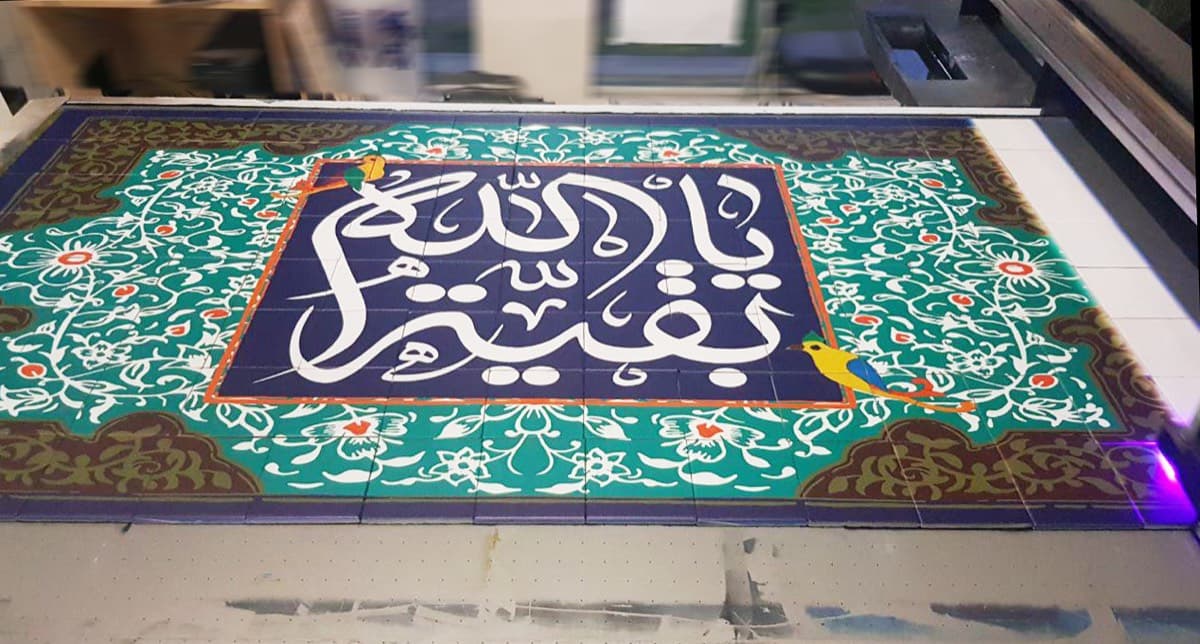 يا بقيّة اللّه